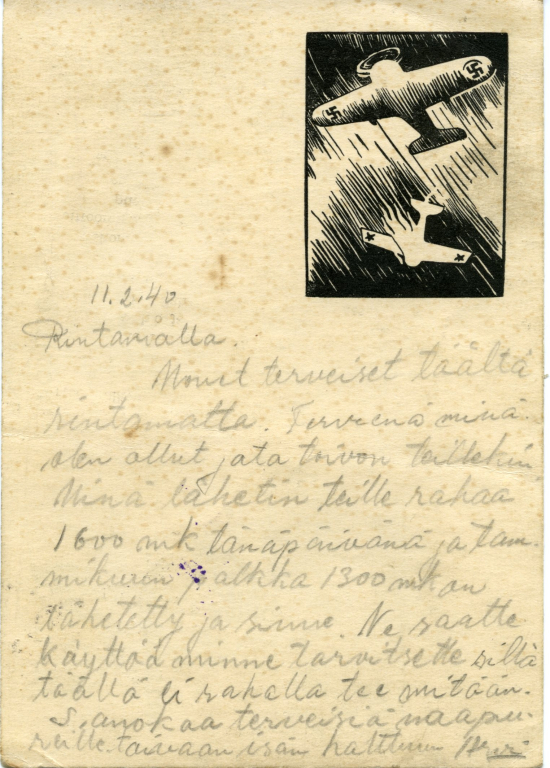 11.2.40
Rintamalla.
Monet terveiset täältä
rintamalta. Terveenä minä
olen ollut jota toivon teillekin
Minä lähetin teille rahaa
1600 mk tänäpäivänä ja tam-
mikuun palkka 1300 mk on
lähetetty ja sinne. Ne saatte
käyttää minne tarvitsette sillä
täällä ei rahalla tee mitään.
Sanokaa terveisiä naapu-
reille. taivaan isän halttuun